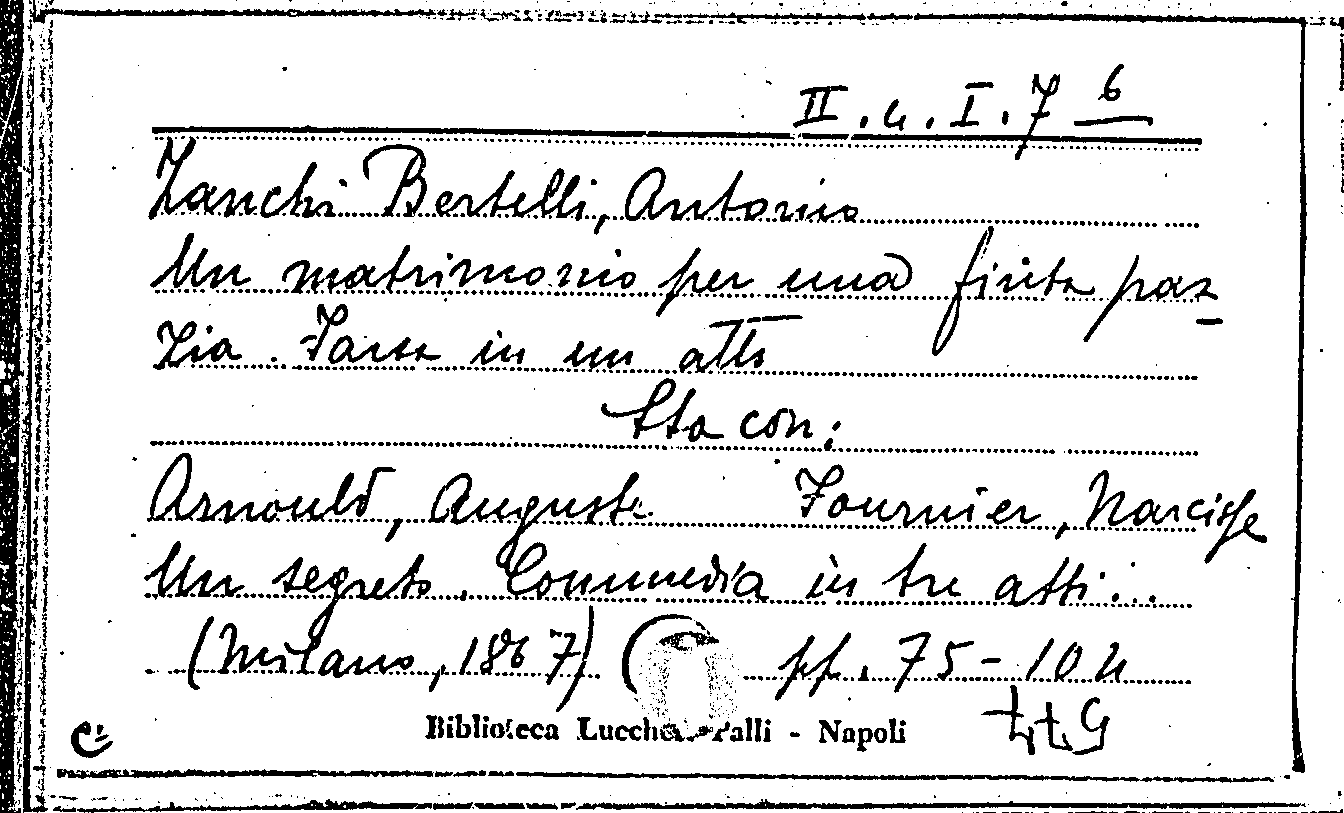 II.4.I.7 6
Zanchi Bertelli, Antonio
Un matrimonio per una finta paz-
zia. Farsa in un atto
Sta con:
Arnould, Auguste Fournier, Narcisse
Un segreto. Commedia in tre atti...
(Milano, 1867) pp. 75-104
Biblioteca Lucchesi Palli - Napoli